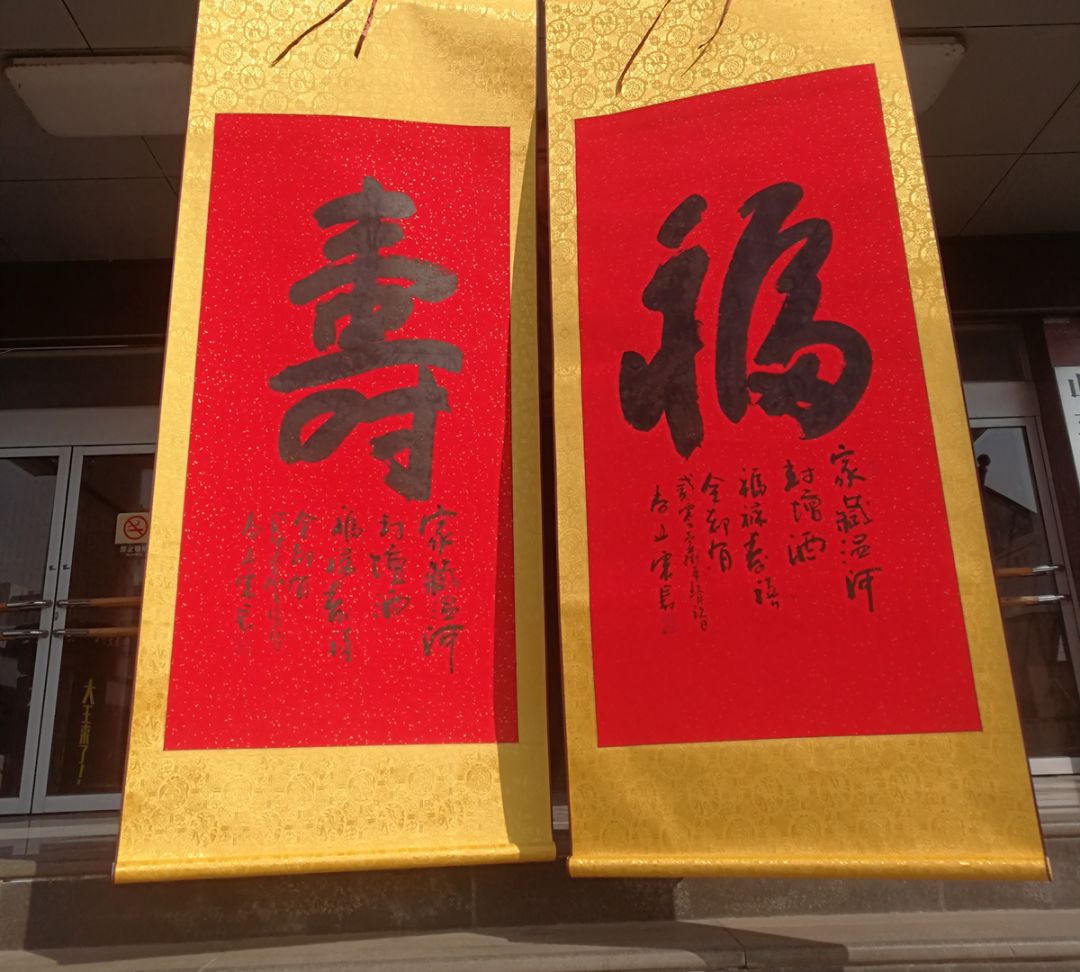 福
家藏温河
封壇酒
福祿壽禧
全都有
寿
家藏温河
封壇酒
福祿壽禧
全都有
大王来了！